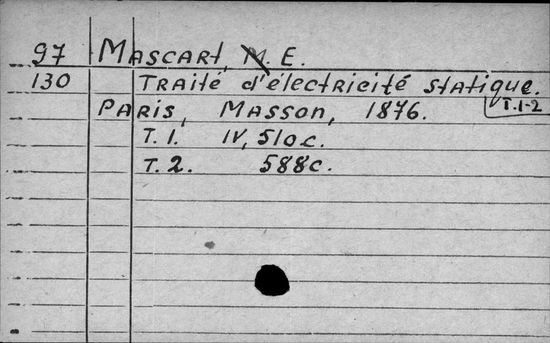 97 Mascart, M. E.
130 Traité d'électricité statique.
T. 1-2
Paris, Masson, 1876.
T. 1. IV, 510 c.
T. 2. 588 c.